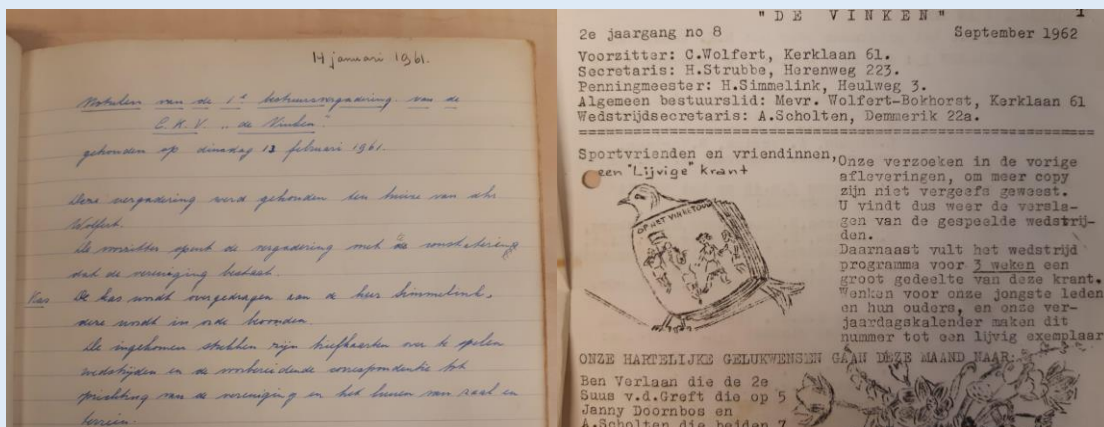 14 januari 1961.
Notulen van de 1e bestuursvergadering van de
C.K.V. "de Vinken".
gehouden op dinsdag 13 februari 1961.
Deze vergadering werd gehouden ten huize van dhr
Wolfert.
De voorzitter opent de vergadering met de constatering
dat de vereniging bestaat.
Kas De kas wordt overgedragen aan de heer Simmelink,
deze wordt in orde bevonden.
De ingekomen stukken zijn briefkaarten over te spelen
wedstrijden en de voorbereidende correspondentie tot
oprichting van de vereniging en het huren van zaal en
terrein.
"DE VINKEN" 1
2e jaargang no 8 September 1962
Voorzitter: C.Wolfert, Kerklaan 61.
Secretaris: H.Strubbe, Herenweg 223.
Penningmeester: H.Simmelink, Heulweg 3.
Algemeen bestuurslid: Mevr. Wolfert-Bokhorst, Kerklaan 61
Wedstrijdsecretaris: A.Scholten, Demmerik 22a.
Sportvrienden en vriendinnen,
een "Lijvige" krant
OP HET VINKETOUW
Onze verzoeken in de vorige
afleveringen, om meer copy
zijn niet vergeefs geweest.
U vindt dus weer de versla-
gen van de gespeelde wedstrij-
den.
Daarnaast vult het wedstrijd
programma voor 3 weken een
groot gedeelte van deze krant.
Wenken voor onze jongste leden
en hun ouders, en onze ver-
jaardagskalender maken dit
nummer tot een lijvig exemplaar
ONZE HARTELIJKE GELUKWENSEN GAAN DEZE MAAND NAAR:
Ben Verlaan die de 2e
Suus v.d.Greft die op 5
Janny Doornbos en
A.Scholten die beiden 7